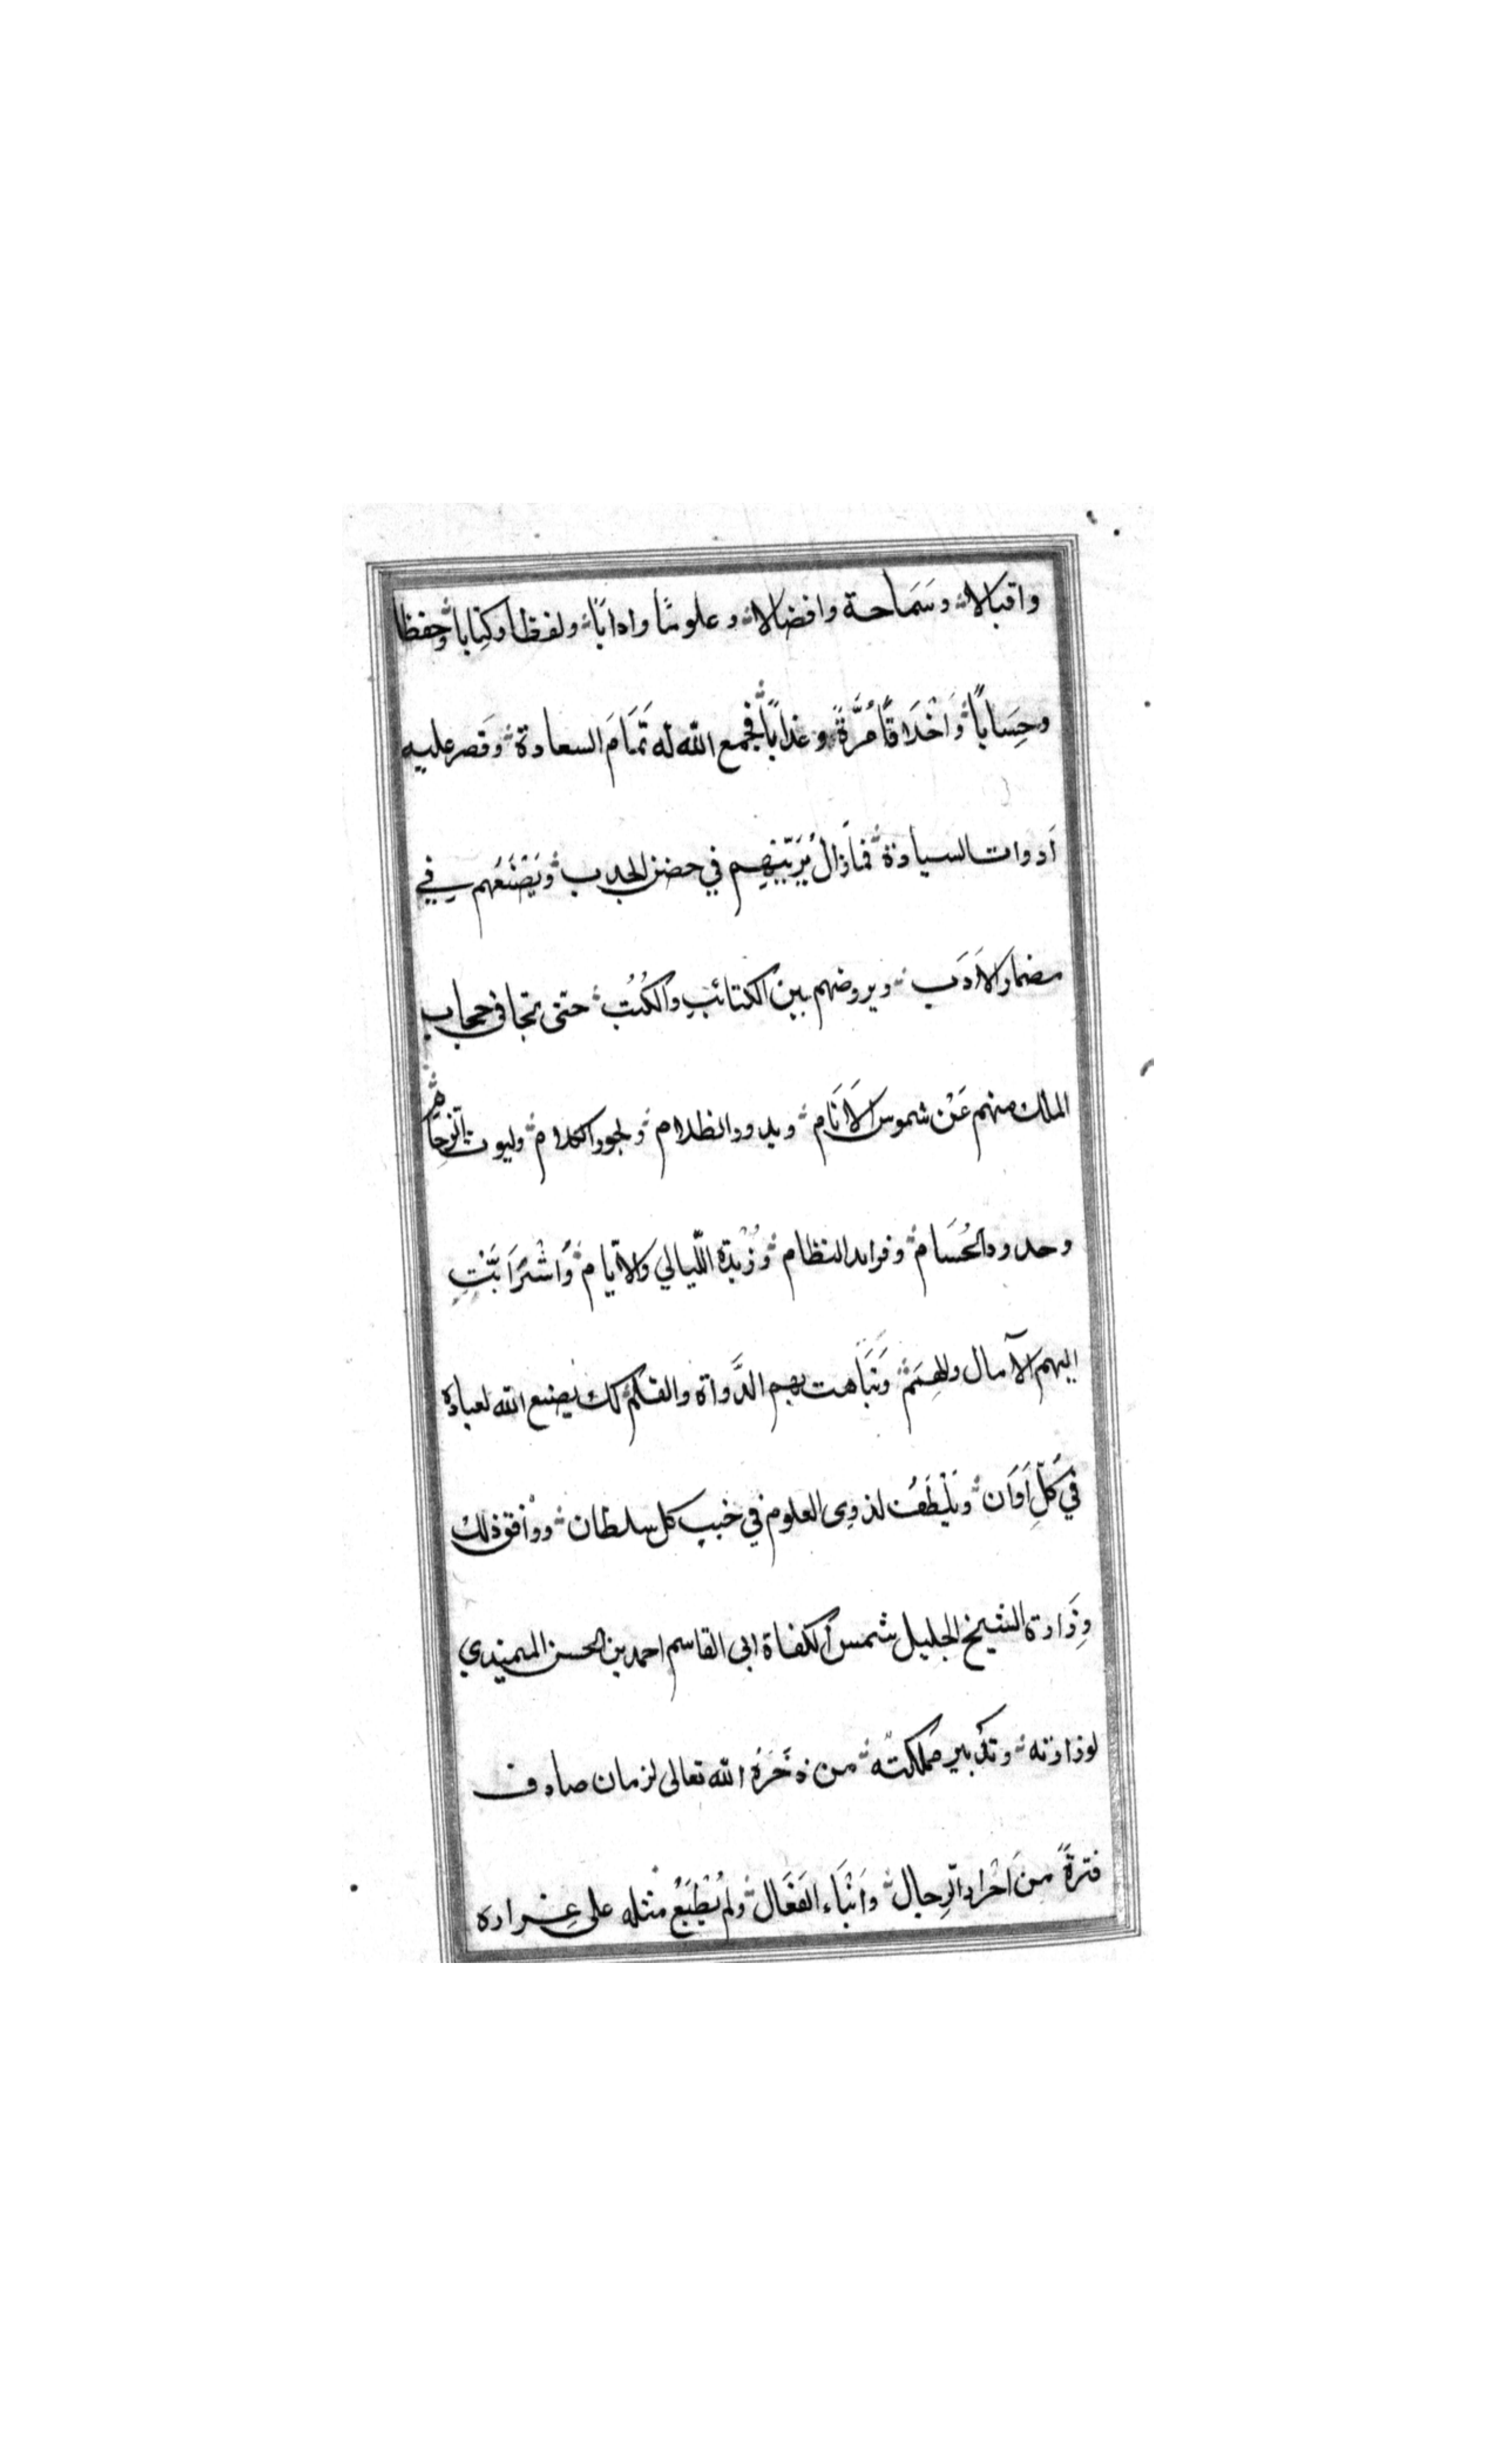 واقبالا وسَمَاحة وافضالا وعلومًا وادابًا ولفظا وكتابا وحفظا
وحِسَاباً وَاَخْلَاقًا مُرَّةً وعذابًا فجمع الله له تَمَامَ السعادة وقصر عليه
اَدوات السيادة فمازال يُرَبّيهم في حضن الجدب ويَصْنَعُهم في
مضمار الاَدَب ويروضهم بين الكتائب والكُتُب حتى تجافى حجاب
الملك منهم عَنْ شموس الاَنَام وبدور الظلام وبحور الكلام وليوث الزحام
وحدود الحُسَام وفرايد النظام وزُبْدة اللّيالي والاَيام وَاشْرَابَّتِ
اليهم الآمال والهِمَم وتَبَاهت بهم الدَّواة والقلم كذلك يصنع الله لعباده
في كُلِّ اَوَان ويَلْطُفُ لذوى العلوم في كل سلطان ووافق ذلك
وِزَارة الشيخ الجليل شمس الكفاة ابى القاسم احمد بن الحسن الميمندي
لوزارته وتدبير مملكته من ذخَرَهُ الله تعالى لزمان صادف
فترةً من اَحْرار الرّجال وَاَنْبَاء الفَعَال ولم يُطْبَعْ مثله على غِراره